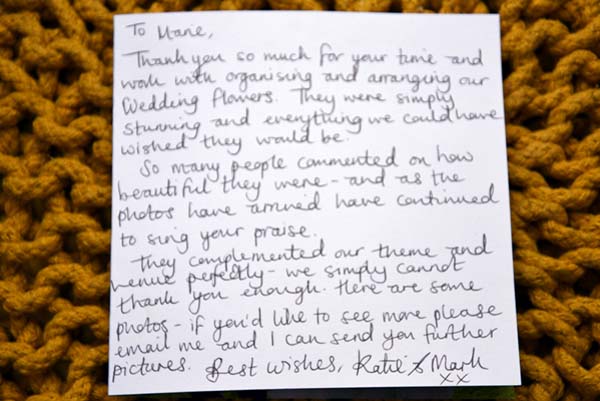 To Marie,
Thank you so much for your time and
work with organising and arranging our
Wedding flowers. They were simply
stunning and everything we could have
wished they would be.
So many people commented on how
beautiful they were - and as the
photos have arrived have continued
to sing your praise.
They complemented our theme and
venue perfectly - we simply cannot
thank you enough. Here are some
photos - if you'd like to see more please
email me and I can send you further
pictures. Best wishes, Katie & Mark
xx